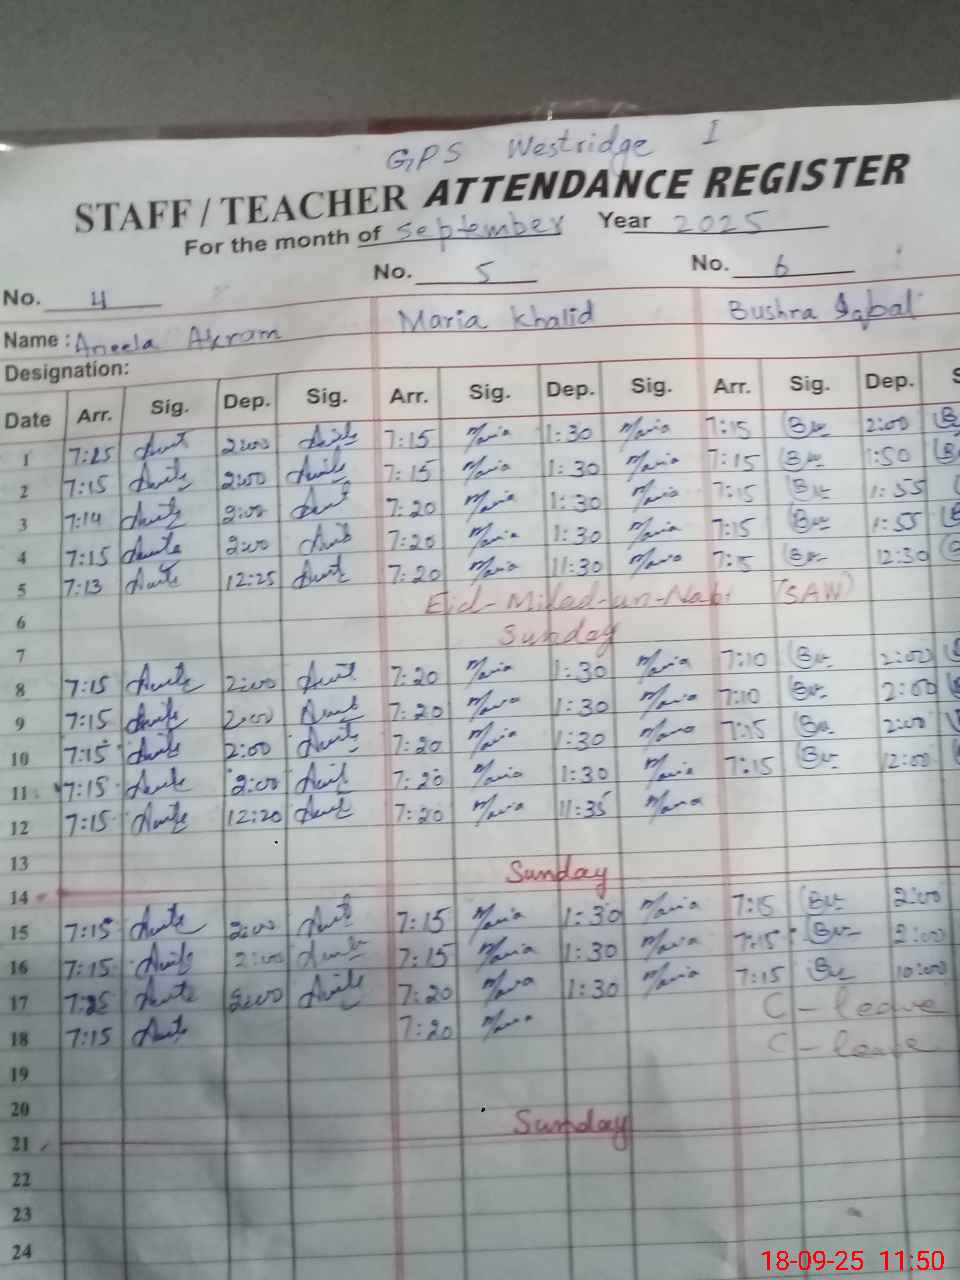 GPS Westridge I
STAFF / TEACHER ATTENDANCE REGISTER
For the month of September Year 2025
No. 4 No. 5 No. 6
Name : Aneela Akram Maria Khalid Bushra Iqbal
Designation:
Date Arr. Sig. Dep. Sig. Arr. Sig. Dep. Sig. Arr. Sig. Dep. S
1 7:25 2:00 7:15 Maria 1:30 Maria 7:15 2:00
2 7:15 2:00 7:15 Maria 1:30 Maria 7:15 1:50
3 7:14 2:00 7:20 Maria 1:30 Maria 7:15 1:55
4 7:15 2:00 7:20 Maria 1:30 Maria 7:15 1:55
5 7:13 12:25 7:20 Maria 11:30 Maria 7:15 12:30
6 Eid-Milad-un-Nabi (SAW)
7 Sunday
8 7:15 2:00 7:20 Maria 1:30 Maria 7:10 2:00
9 7:15 2:00 7:20 Maria 1:30 Maria 7:10 2:00
10 7:15 2:00 7:20 Maria 1:30 Maria 7:15 2:00
11 7:15 2:00 7:20 Maria 1:30 Maria 7:15 12:00
12 7:15 12:20 7:20 Maria 11:35 Maria
13
14 Sunday
15 7:15 2:00 7:15 Maria 1:30 Maria 7:15 2:00
16 7:15 2:00 7:15 Maria 1:30 Maria 7:15 2:00
17 7:25 2:00 7:20 Maria 1:30 Maria 7:15 10:00
18 7:15 7:20 Maria C-leave
19 C-leave
20
21 Sunday
22
23
24
18-09-25 11:50